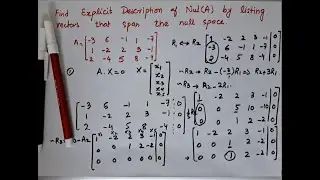 Find Explicit Description of Nul(A) by listing
vectors that span the null space.
A = [-3 6 -1 1 -7
1 -2 2 3 -1
2 -4 5 8 -4]
R1 ↔ R2 [1 -2 2 3 -1 | 0
-3 6 -1 1 -7 | 0
2 -4 5 8 -4 | 0]
① A.X=0 X = [x1
x2
x3
x4
x5]
→R2 - (-3)R1 ⇒ R2+3R1
→R3 - 2R1
[-3 6 -1 1 -7 : 0
1 -2 2 3 -1 : 0
2 -4 5 8 -4 : 0]
[1 -2 2 3 -1 | 0
0 0 5 10 -10 | 0
0 0 1 2 -2 | 0]
x1 x2 x3 x4 x5
[1 -2 2 3 -1 | 0
0 0 1 2 -2 | 0
0 0 0 0 0 | 0]
[1 -2 2 3 -1 | 0
0 0 1 2 -2 | 0
0 0 1 2 -2 | 0]